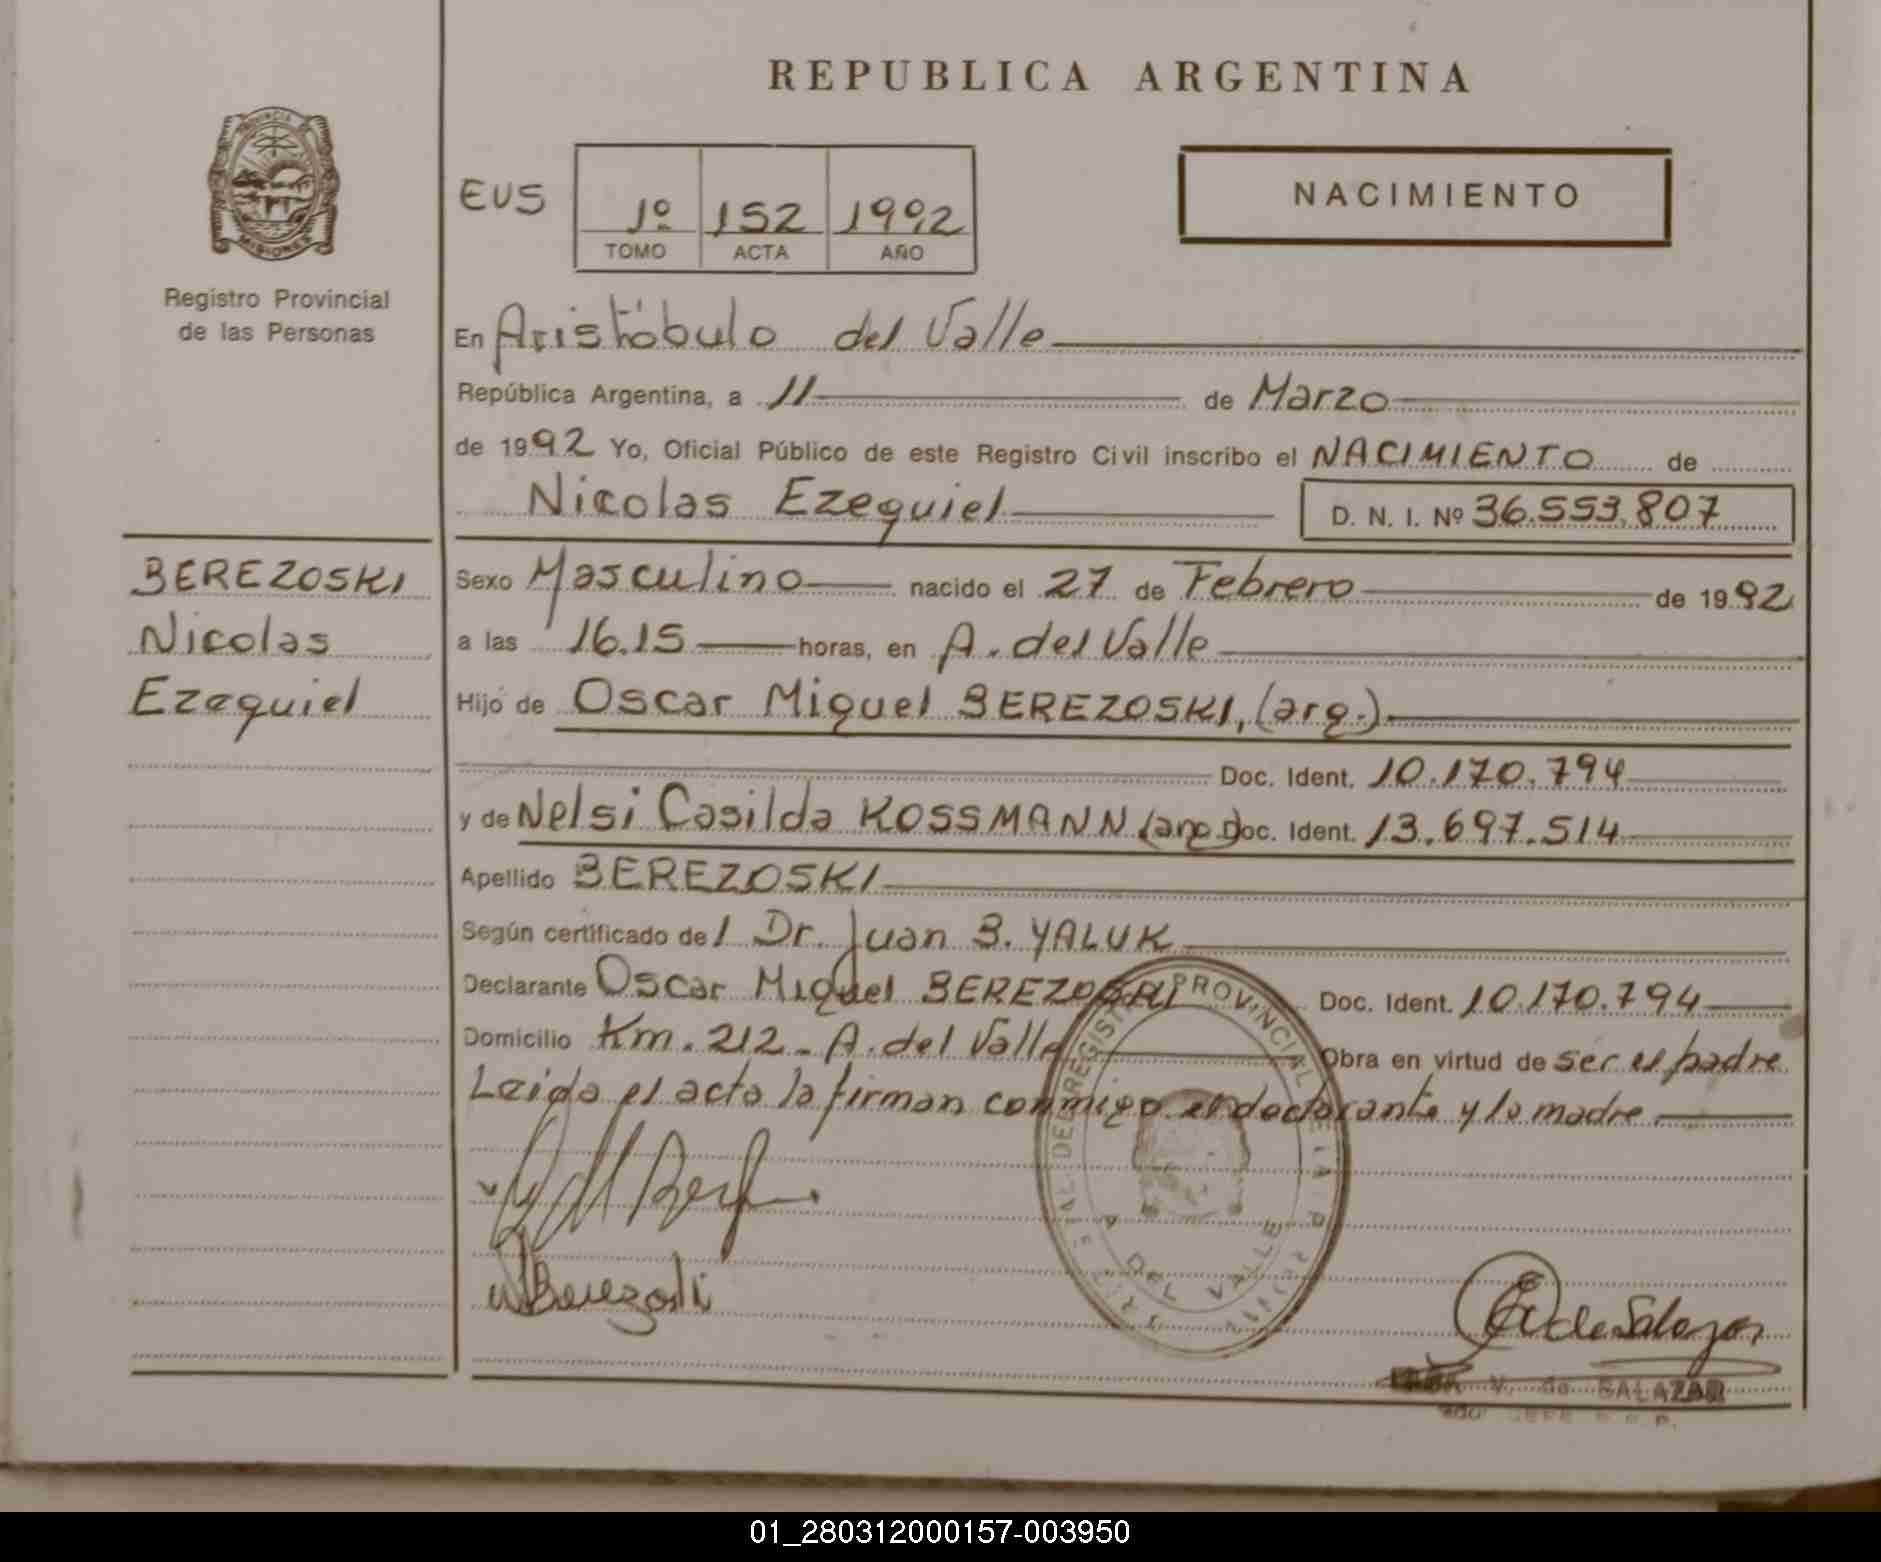 REPUBLICA ARGENTINA
PROVINCIA DE
MISIONES
Registro Provincial
de las Personas
EUS
1º 152 1992
TOMO ACTA AÑO
NACIMIENTO
En Aristóbulo del Valle
República Argentina, a 11 de Marzo
de 1992 Yo, Oficial Público de este Registro Civil inscribo el NACIMIENTO de
Nicolas Ezequiel D. N. I. Nº 36.553.807
BEREZOSKI
Nicolas
Ezequiel
Sexo Masculino nacido el 27 de Febrero de 1992
a las 16.15 horas, en A. del Valle
Hijo de Oscar Miguel BEREZOSKI, (arg.)
Doc. Ident. 10.170.794
y de Nelsi Casilda KOSSMANN (arg.) Doc. Ident. 13.697.514
Apellido BEREZOSKI
Según certificado de l Dr. Juan B. YALUK
Declarante Oscar Miguel BEREZOSKI Doc. Ident. 10.170.794
Domicilio Km. 212 - A. del Valle Obra en virtud de ser el padre
Leida el acta la firman conmigo el declarante y la madre.
REGISTRO PROVINCIAL DE LA P
A DEL VALLE
Berezoski
de Salazar
V. de SALAZAR
01_280312000157-003950